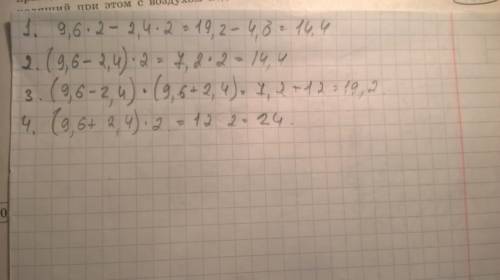 лящий при этом с воздухом
1. 9,6 · 2 - 2,4 · 2 = 19,2 - 4,8 = 14,4
2. (9,6 - 2,4) · 2 = 7,2 · 2 = 14,4
3. (9,6 - 2,4) + (9,6 + 2,4) = 7,2 + 12 = 19,2
4. (9,6 + 2,4) · 2 = 12 2 = 24.